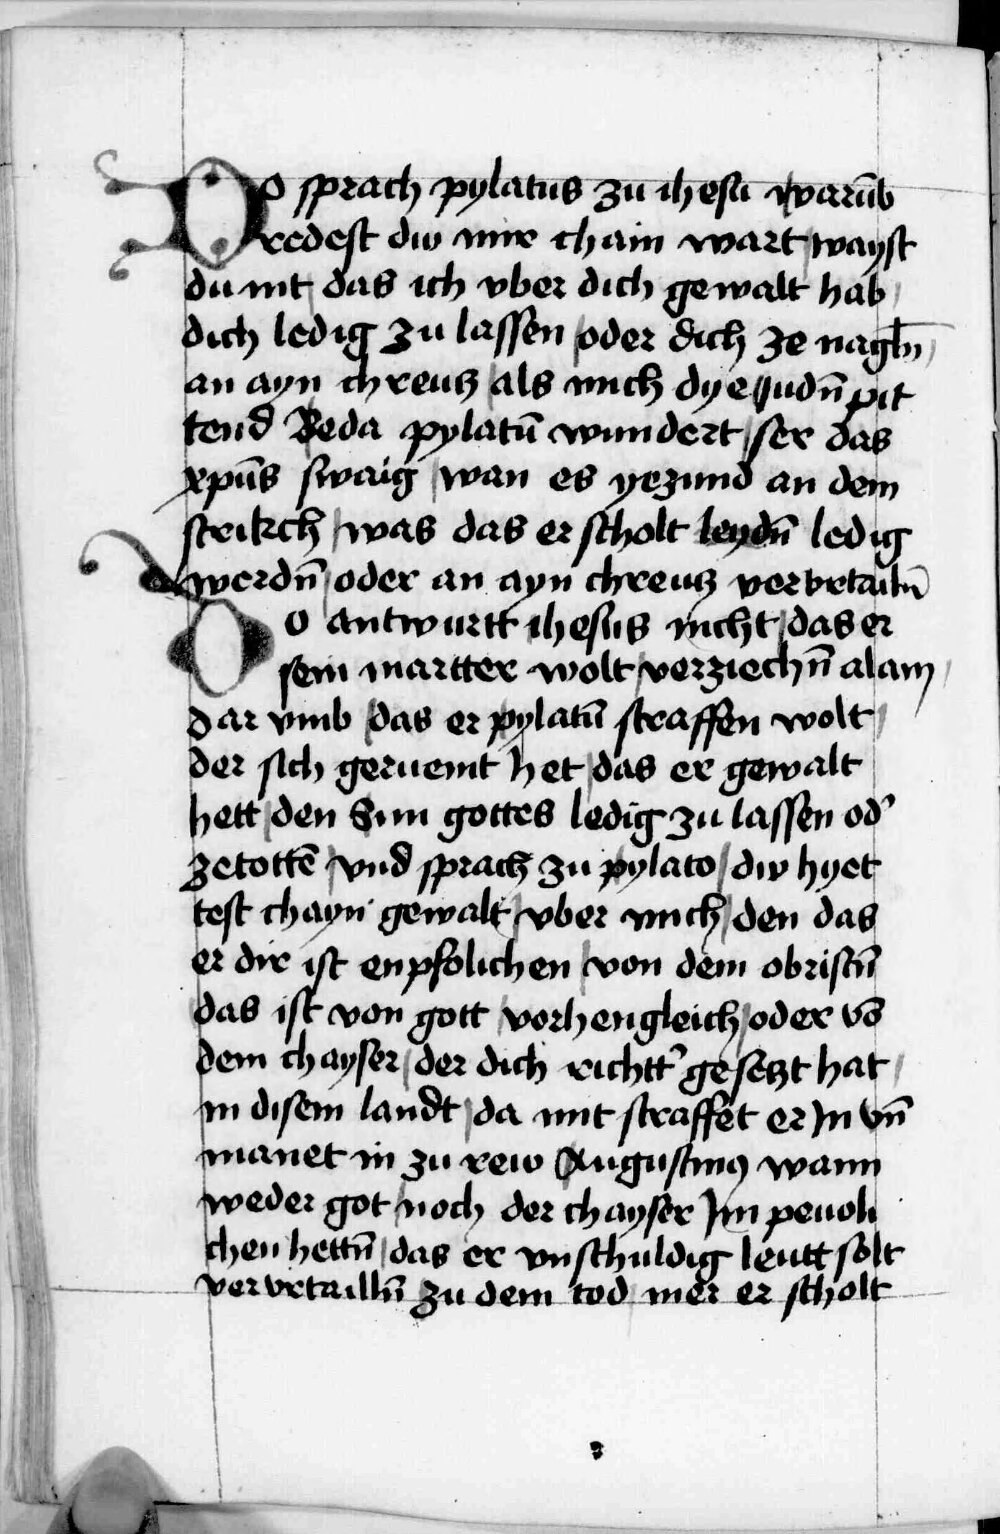 Do sprach pylatus zu ihesu warūb
redest diw mir chain wart wayst
du nit das ich vber dich gewalt hab
dich ledig zu lassen oder dich ze nagln̄
an ayn chreutz als mich dye Judn̄ pit
tend Beda pylatū wundert ser das
xpūs swaig wan es yezund an dem
strikch was das er scholt leydn̄ ledig
werdn̄ oder an ayn chreutz vervrtailn̄
Do antwurtt ihesus nicht das er
sein martter wolt verziechn̄ alain
dar vmb das er pylatū straffen wolt
der sich geruemt het das er gewalt
hett den Sun gottes ledig zu lassen od'
zetottē vnd sprach zu pylato diw hyet
test chayn gewalt vber mich den das
er dir ist enpfolichen von dem obristn̄
das ist von gott vorhengleich oder vō
dem chayser der dich richtt' gesetzt hat
in disem landt da mit straffet er In vn̄
manet in zu rew Augustinꝰ wann
weder got noch der chayser Im peuoli
chen hettn̄ das er vnschuldig leutt solt
vervrtailln̄ zu dem tod mer er scholt